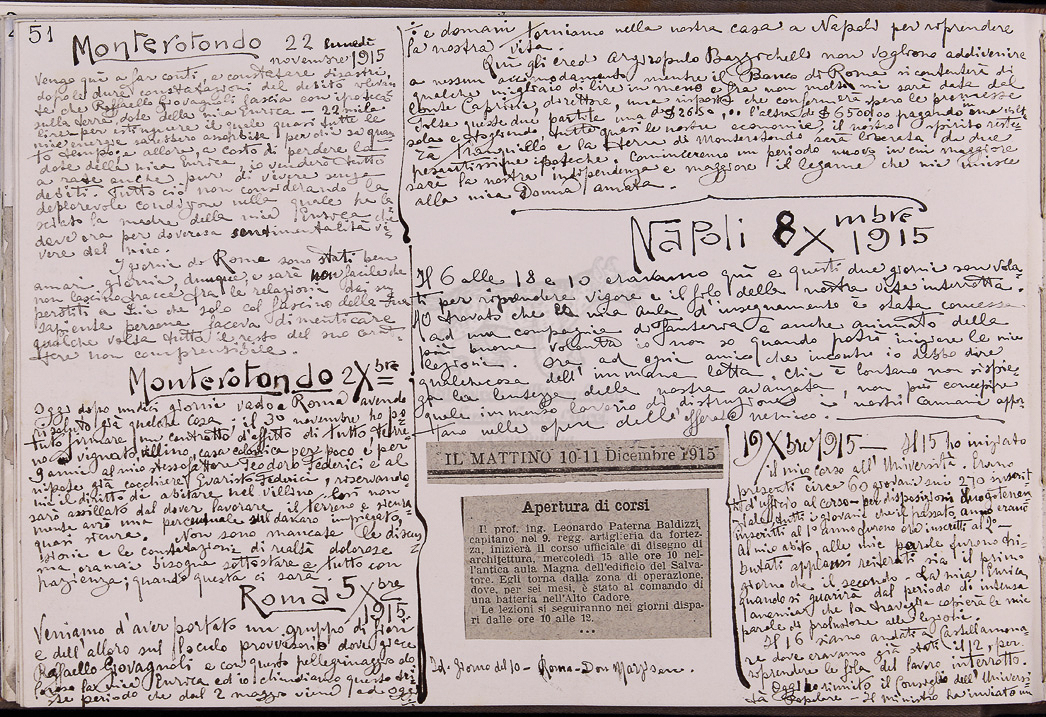 51
Monterotondo 22 lunedì
novembre 1915
Vengo quì a far conti, e constatare disastri,
dopo le dure constatazioni del debito
che Raffaello Giovagnoli lascia con ipoteca
sulla terra dote della mia Enrica — 22 mila
lire — per estinguere il quale quasi tutte le
mie energie saranno
to tempo e allora, a costo di perdere la
dote della mia Enrica, io venderò tutto
a rate anche pur di vivere senza
debiti. Tutto ciò non considerando la
deplorevole condizione nella quale ha la
sciato la madre della mia Enrica che
deve ora per doverosa sentimentalità vi
vere del mio.
I giorni di Roma sono stati ben
amari giorni, dunque, e sarà non facile che
non lascino tracce fra le relazioni dei su
perstiti a Lui che solo col fascino della Sua
sapiente persona faceva dimenticare
qualche volta tutto il resto del suo carat
tere non comprensibile.
Monterotondo 2 Xbre
Oggi dopo undici giorni vado a Roma avendo
qualche cosa, il 30 novembre ho po
tuto firmare un contratto d'affitto di tutto terre
no, vignato villino, casa colonica per poco e per
9 anni al mio stesso fattore Teodoro Federici e al
nipote già cocchiere Evaristo Federici, riservando
mi il diritto di abitare nel villino. Così non
sarò assillato dal dover lavorare il terreno e sicura
mente avrò una percentuale sul danaro impiegato,
quasi sicura. Non sono mancate le discus
sioni e le constatazioni di realtà dolorose
ma, oramai bisogna sottostare a tutto con
pazienza, quando questa ci sarà.
Roma 5 Xbre
1915
Veniamo d'aver portato un gruppo di fiori
e dell'alloro sul loculo provvisorio dove giace
Raffaello Giovagnoli e con questo pellegrinaggio do
loroso la mia Enrica ed io chiudiamo questo tri
ste periodo che dal 2 maggio viene ad oggi
e domani torniamo nella nostra casa a Napoli per riprendere
la nostra vita.
Quì gli eredi Argiropulo Bazzichelli non vogliono addivenire
a nessun accomodamento mentre il Banco di Roma si contenterà di
qualche migliaio di lire in meno e fra non molto mi sarà data dal
Conte Caprini direttore, una risposta che confermerà spero le promesse
solo e togliendo, tutte quasi le nostre economie, il nostro spirito reste
rà tranquillo e la terra di Monterotondo sarà liberata da
pesantissime ipoteche. Cominceremo un periodo nuovo in cui maggiore
sarà la nostra indipendenza e maggiore il legame che mi unisce
alla mia Donna amata.
Napoli 8 Xmbre
1915
Il 6 alle 18 e 10 eravamo quì e questi due giorni son vola
ti per riprendere vigore e il filo della nostra vita interrotta.
Ho trovato che la mia aula d'insegnamento è stata concessa
ad una compagnia di fanteria e anche animato della
più buona volontà io non so quando potrò iniziare le mie
lezioni. Sia ad ogni amico che incontro io debbo dire
qualchecosa dell'immane lotta. Chi è lontano non rispie
ga la lentezza della nostra avanzata non può concepire
quale immenso lavoro di distruzione i nostri cannoni appor
tano nelle opere dell'efferato nemico.
IL MATTINO 10-11 Dicembre 1915
Apertura di corsi
Il prof. ing. Leonardo Paterna Baldizzi,
capitano nel 9. regg. artiglieria da fortez-
za, inizierà il corso ufficiale di disegno di
architettura, mercoledì 15 alle ore 10 nel-
l'antica aula Magna dell'edificio del Salva-
tore. Egli torna dalla zona di operazione,
dove, per sei mesi, è stato al comando di
una batteria nell'Alto Cadore.
Le lezioni si seguiranno nei giorni dispa-
ri dalle ore 10 alle 12.
Id. Giorno del 10 — Roma — Don Marzio
19 Xbre 1915 — Il 15 ho iniziato
il mio corso all'Università. Erano
presenti circa 60 giovani sui 270 inscrit
ti d'ufficio al corso — per disposizioni luogotenen
ziali tutti i giovani che il passato anno erano
inscritti al 1º anno furono inscritti al 2º —
Al mio abito, alle mie parole furono tri
butati applausi reiterati sia il primo
giorno che il secondo — La mia Enrica
quando si quarirà dal periodo di intensa
lontananza che la travaglia copierà le mie
parole di prolusione alle lezioni.
Il 16 siamo andati a Castellamma
re dove eravamo già stati il 12, per
riprendere le fila del lavoro interrotto.
Oggi ho riunito il Consiglio dell'Universi
tà Popolare — Il ministro ha inviato un